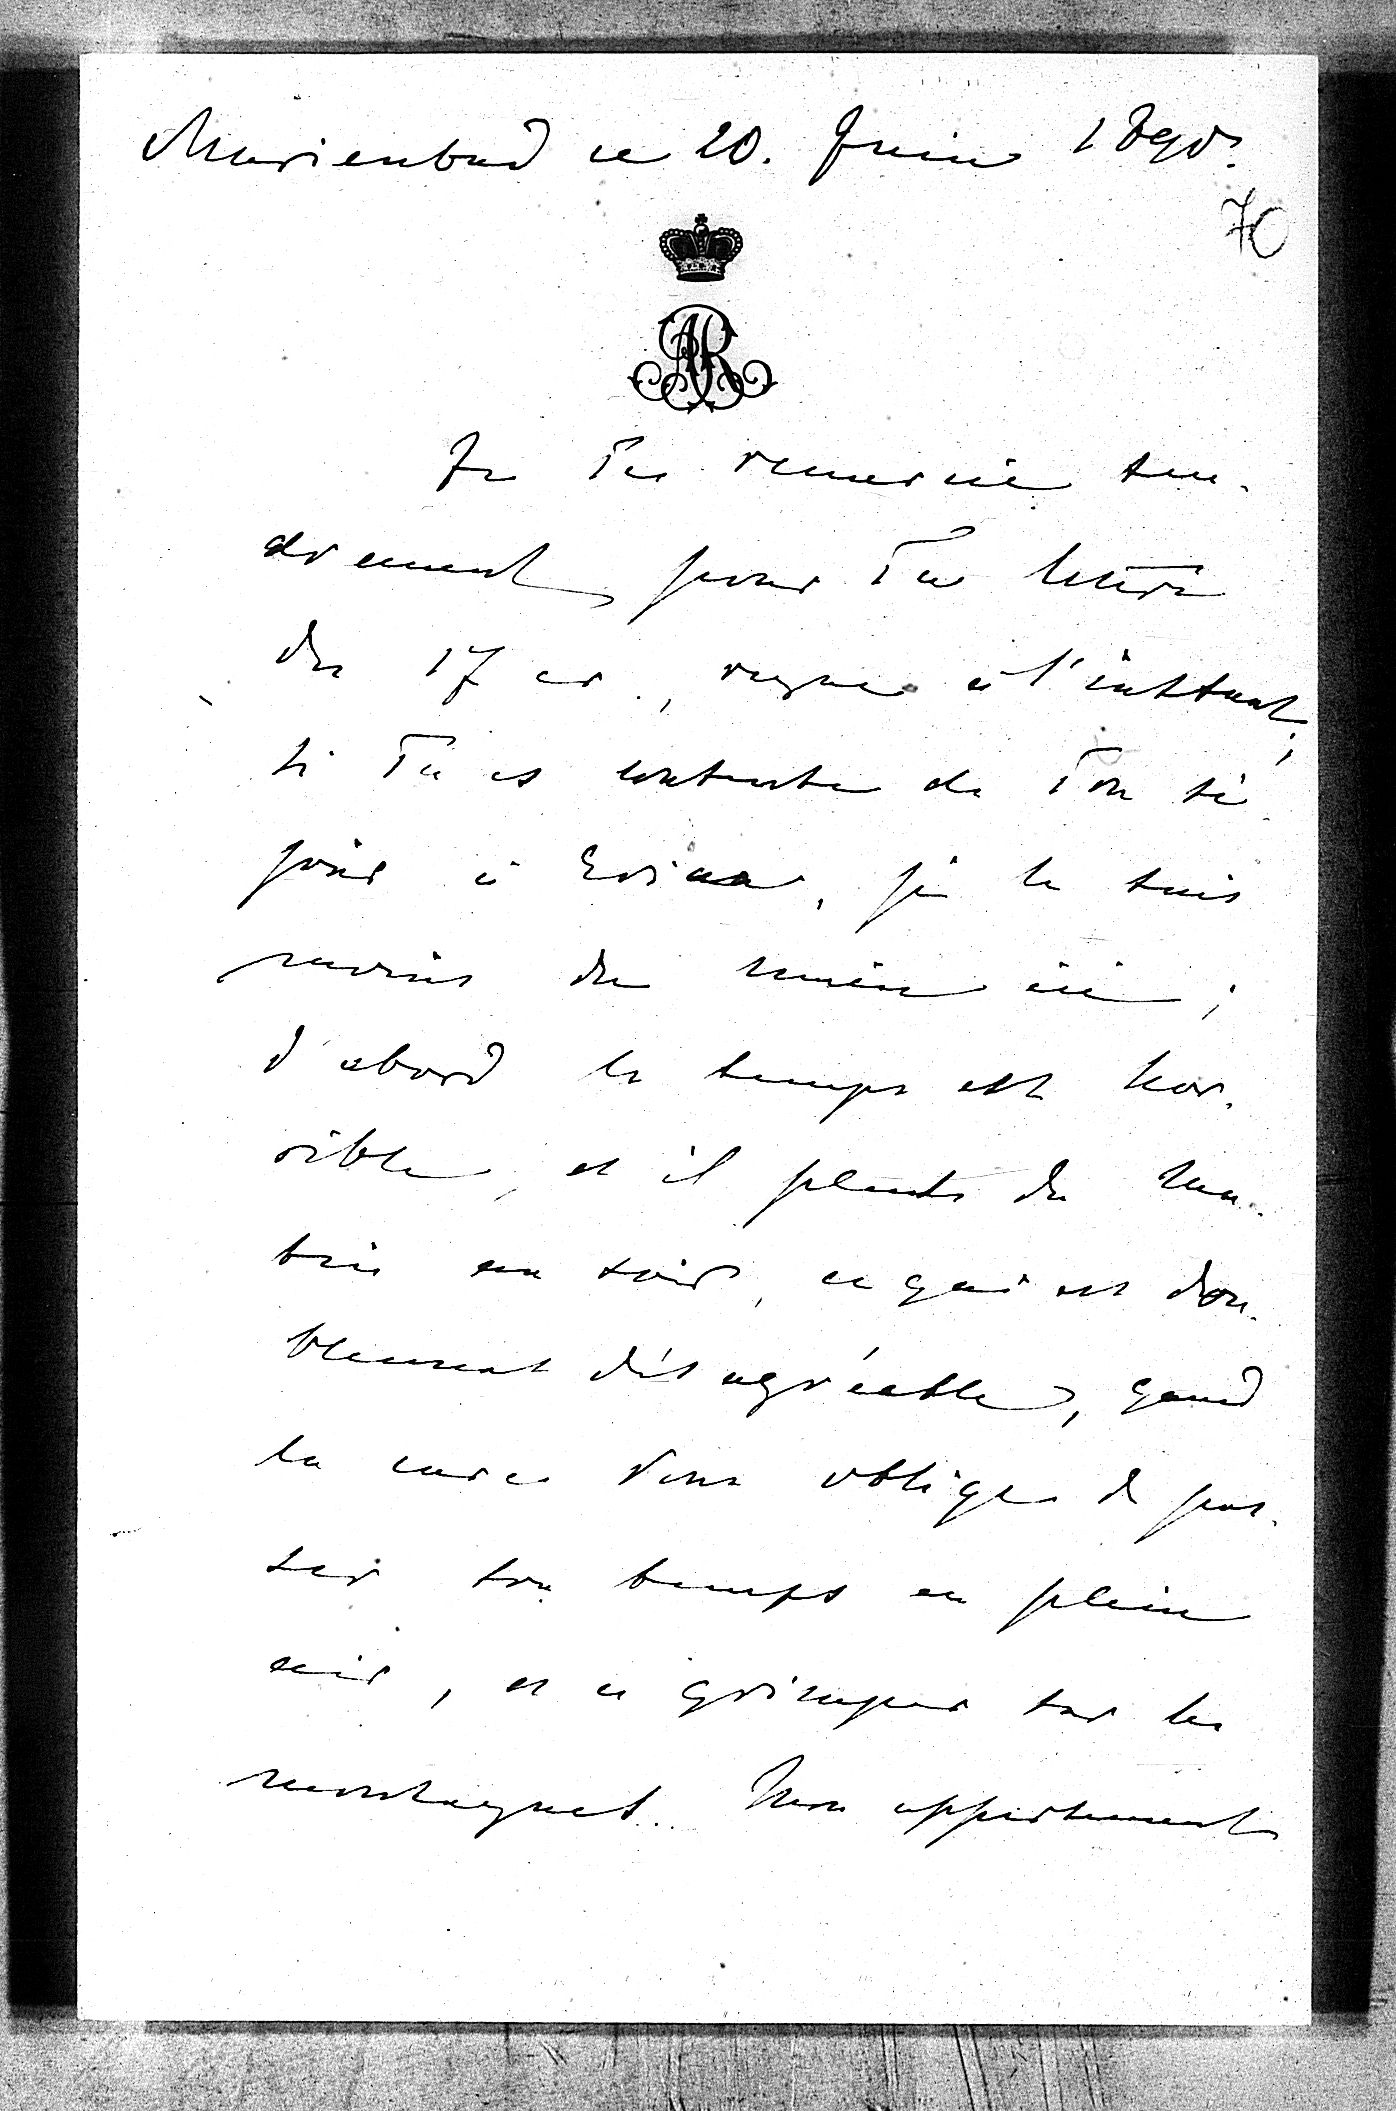 Marienbad ce 20. Juin 1890.
70
AR
Je Te remercie ten-
drement pour Ta lettre
du 17 cr., reçue à l'instant;
si Tu es contente de Ton sé-
jour à Evian, je le suis
moins du mien ici;
d'abord le temps est hor-
rible, et il pleut du ma-
tin au soir, ce qui est dou-
blement désagréable, quand
la cure vous oblige de pas-
ser son temps en plein
air, et à grimper sur les
montagnes. Mon appartement